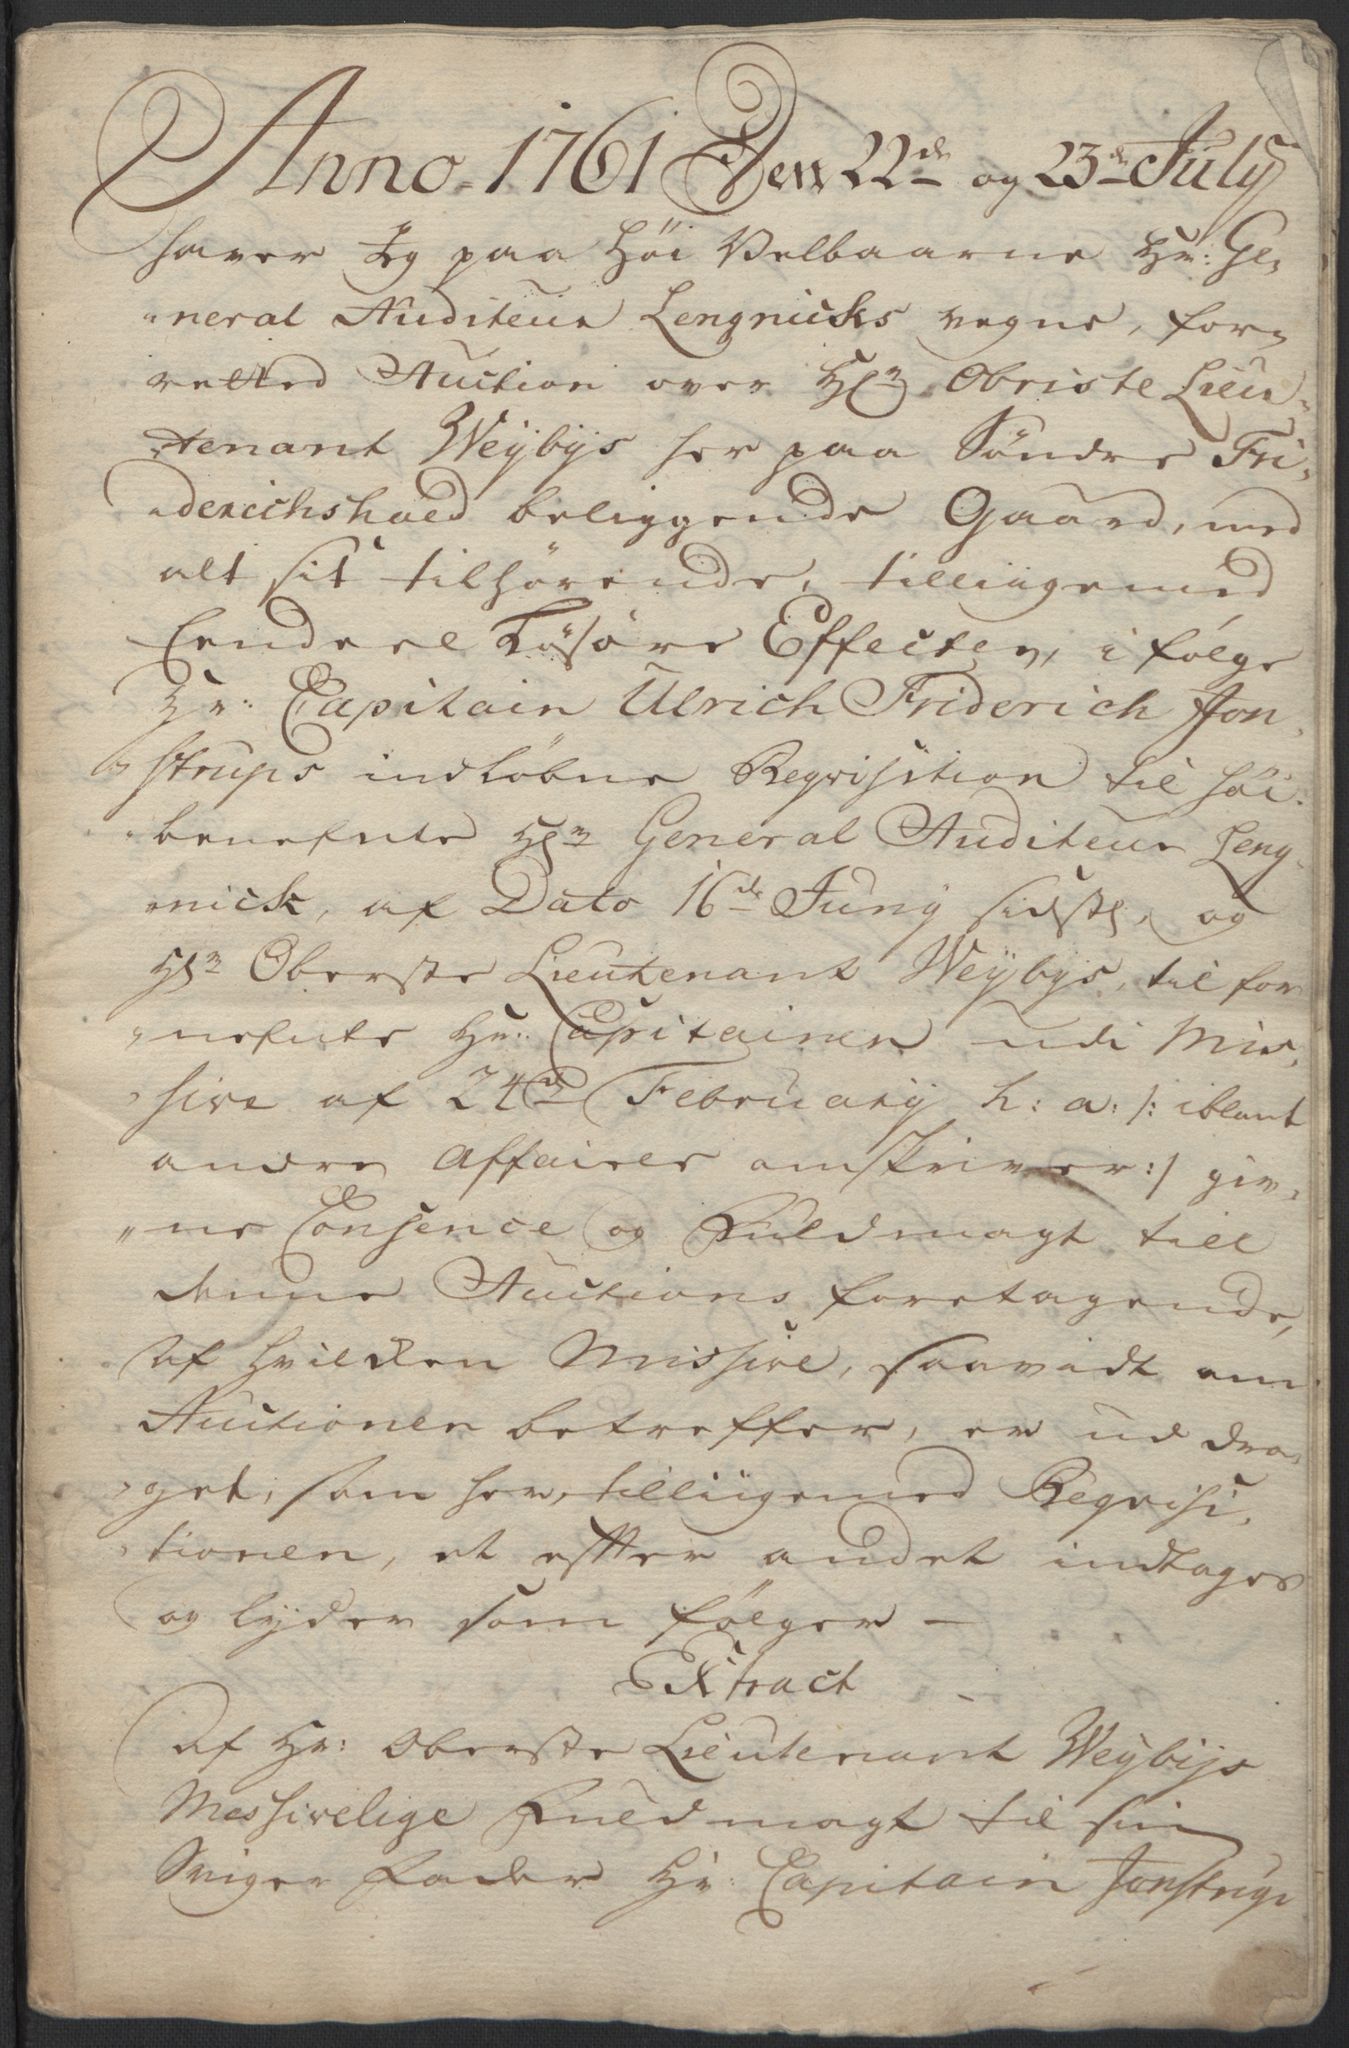 Anno 1761 Den 22de og 23de July
haver Jeg paa Höi Velbaarne Hr: Ge,
neral Auditeur Lengnicks vegne, for,
retted Auction over Hr Obriste Lieu,
tenant Weÿbÿs her paa Söndre Fri,
derichshald beliggende Gaard, med
alt sit tilhörende, tilliigemed
Eendeel Lösöre Effecter, i følge
Hr: Capitain Ulrich Friderich Jon,
strups indløbne Reqvisition til höi
benefnte Hr General Auditeur Leng,
nick, af Dato 16de Juny sidstl, og
Hr Oberste Lieutenant Weÿbÿs, til for
nefnte Hr: Capitainen udi Mis,
sive af 24de February h: a: /: iblant
andre Affairer omskriver :/ giv,
ne Consence og Fuldmagt till
denne Auctions foretagende,
Af hvilken Missive, saavidt om
Auctionen betreffer, er ud dra,
get, som her, tilliigemed Reqvisi,
tionen, et efter andet indtages
og lyder som følger —
Extract
Af Hr: Oberste Lieutenant Weÿbÿs
Messivelige Fuldmagt til sin
Sviger Fader Hr: Capitain Jonstrup